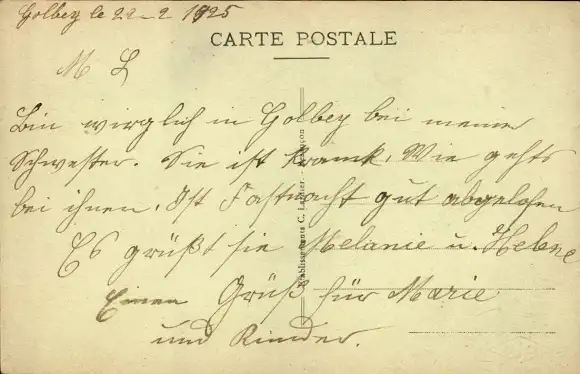 Golbey le 22-2 1925
CARTE POSTALE
M L
Bin wirglich in Golbey bei meiner
Schwester. Sie ist krank, Wie gehts
bei ihnen. Ist Fastnacht gut abgelofen
Es grüßt sie Melanie u. Helene
Einen Grüß für Marie
und Kinder.
Etablissements C.